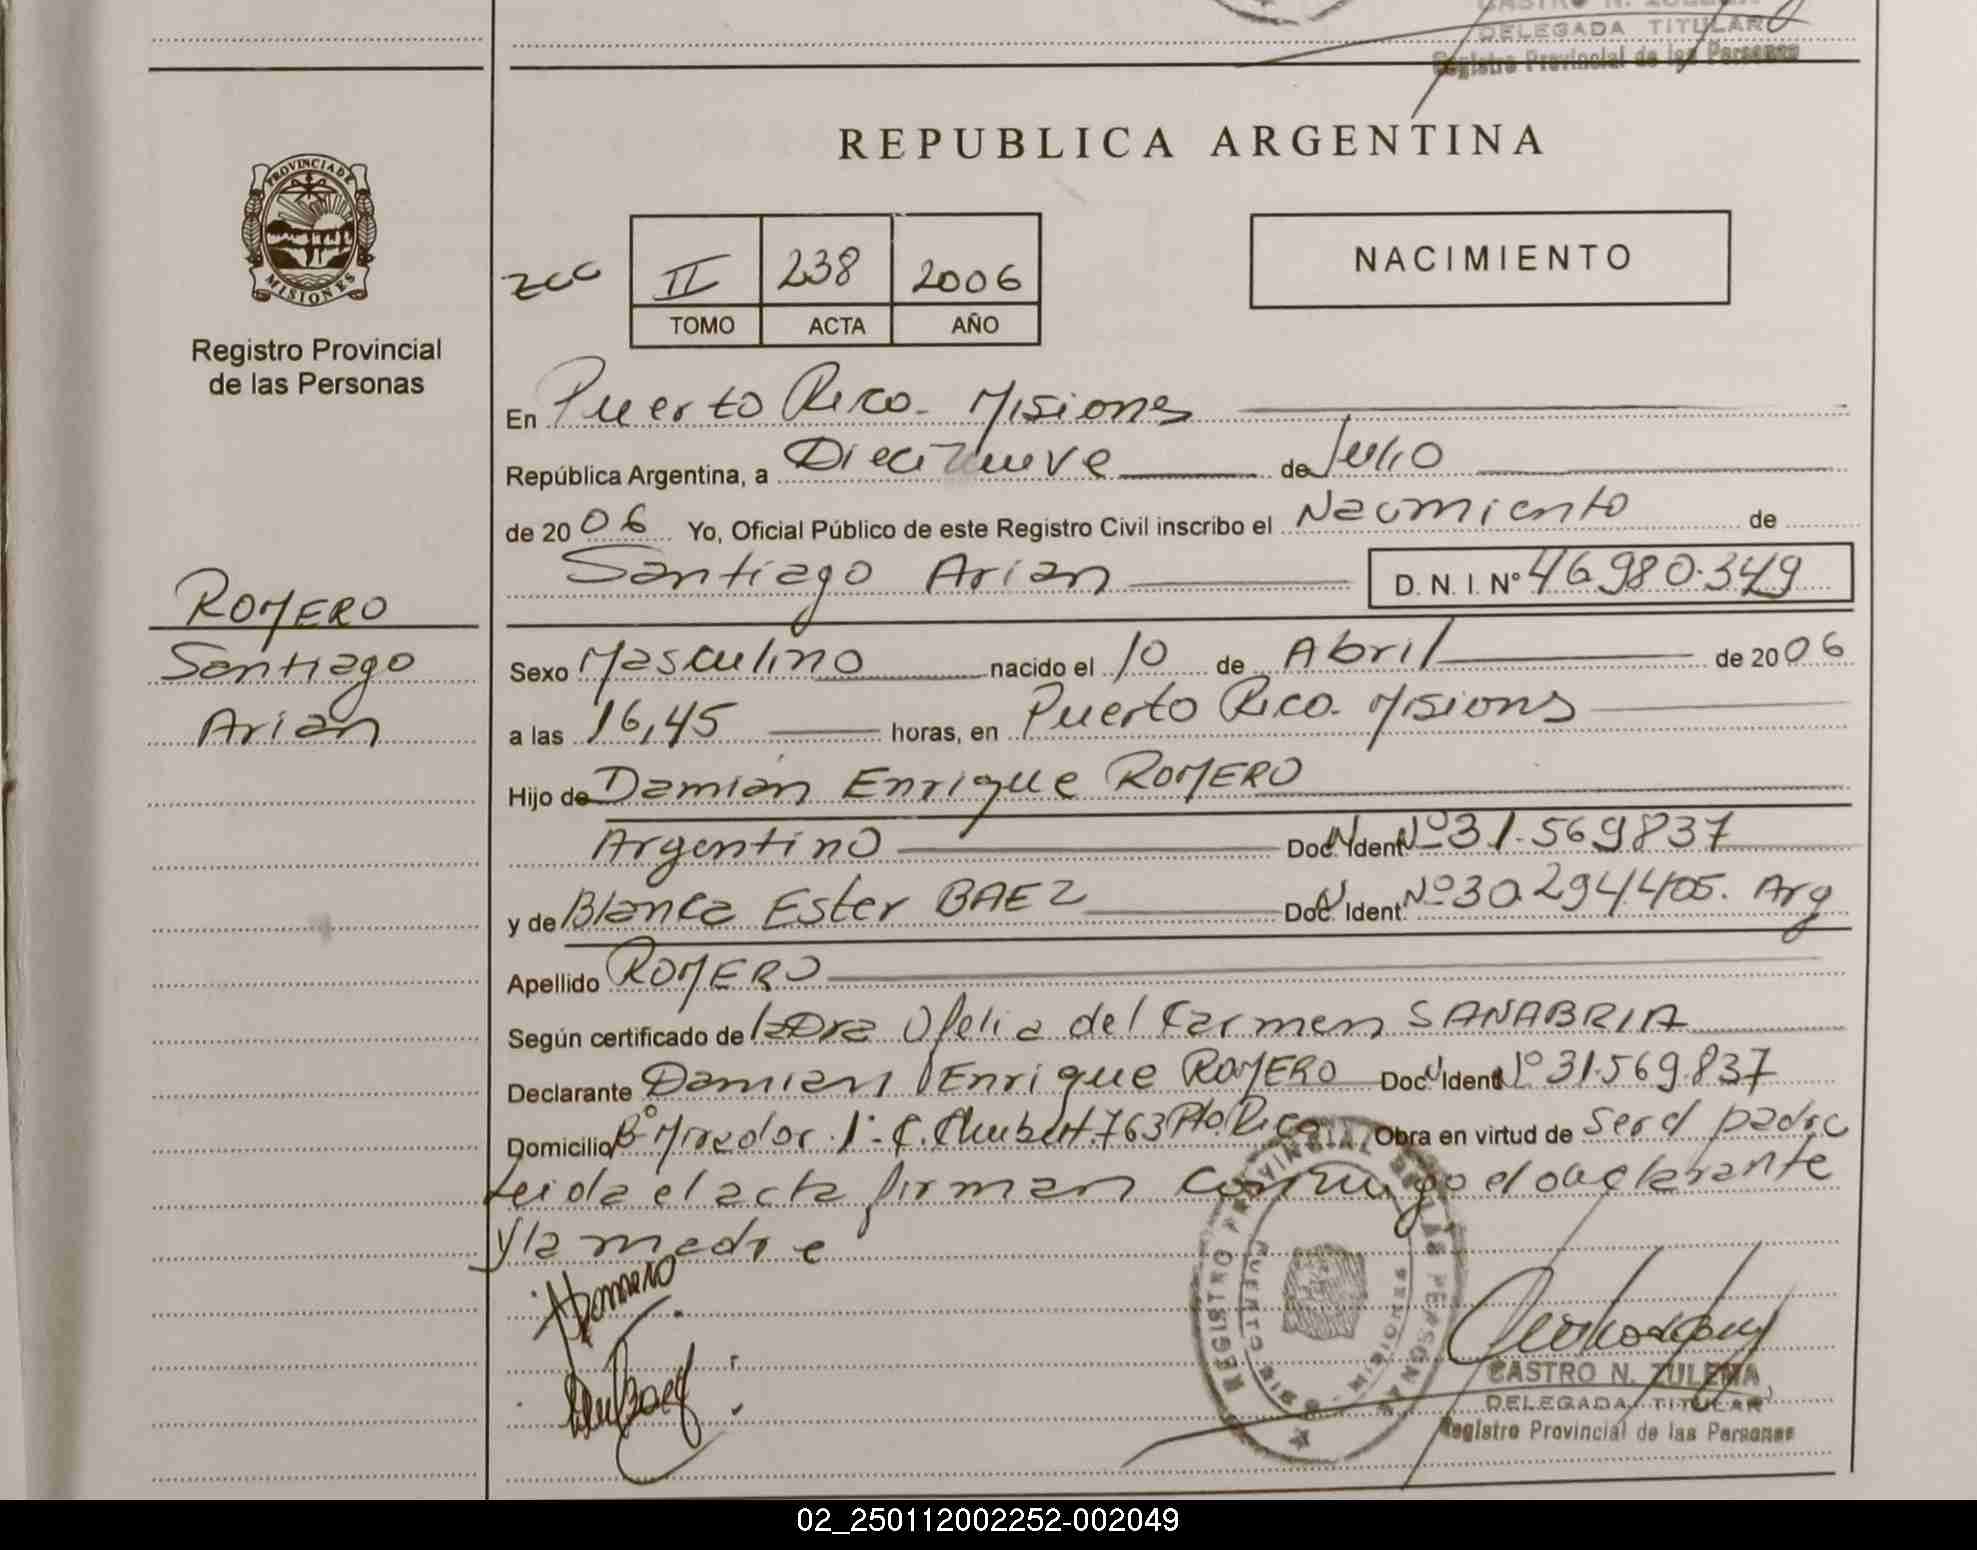 CASTRO N. ZULEMA
DELEGADA TITULAR
Registro Provincial de las Personas
PROVINCIA DE
MISIONES
Registro Provincial
de las Personas
REPUBLICA ARGENTINA
II 238 2006
TOMO ACTA AÑO
NACIMIENTO
En Puerto Rico. Misiones
República Argentina, a Diecinueve de Julio
de 2006 Yo, Oficial Público de este Registro Civil inscribo el Nacimiento de
Santiago Arian D. N. I. Nº 46.980.349
ROMERO
Santiago
Arian
Sexo Masculino nacido el 10 de Abril de 2006
a las 16,45 horas, en Puerto Rico. Misiones
Hijo de Damián Enrique ROMERO
Argentino Doc. Ident Nº 31.569837
y de Blanca Ester BAEZ Doc. Ident. Nº 30.294.405. Arg
Apellido ROMERO
Según certificado de la Dra Ofelia del Carmen SANABRIA
Declarante Damian Enrique ROMERO Doc. Ident Nº 31.569.837
Domicilio Bº Mirador 763 Pto. Rico Obra en virtud de ser el padre
Leida el acta firman conmigo el declarante
y la madre
Romero
REGISTRO PROVINCIAL DE LAS PERSONAS
PUERTO RICO MISIONES
CASTRO N. ZULEMA
DELEGADA TITULAR
Registro Provincial de las Personas
02_250112002252-002049